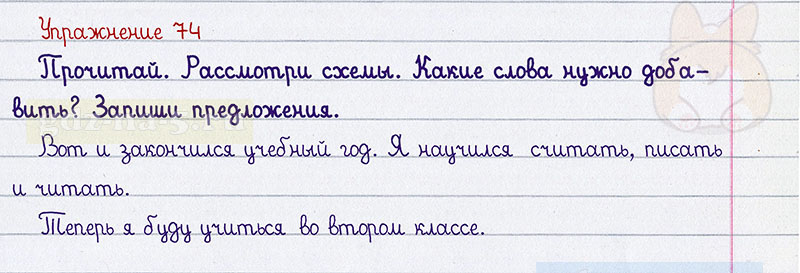 Упражнение 74
Прочитай. Рассмотри схемы. Какие слова нужно доба-
вить? Запиши предложения.
Вот и закончился учебный год. Я научился считать, писать
и читать.
Теперь я буду учиться во втором классе.